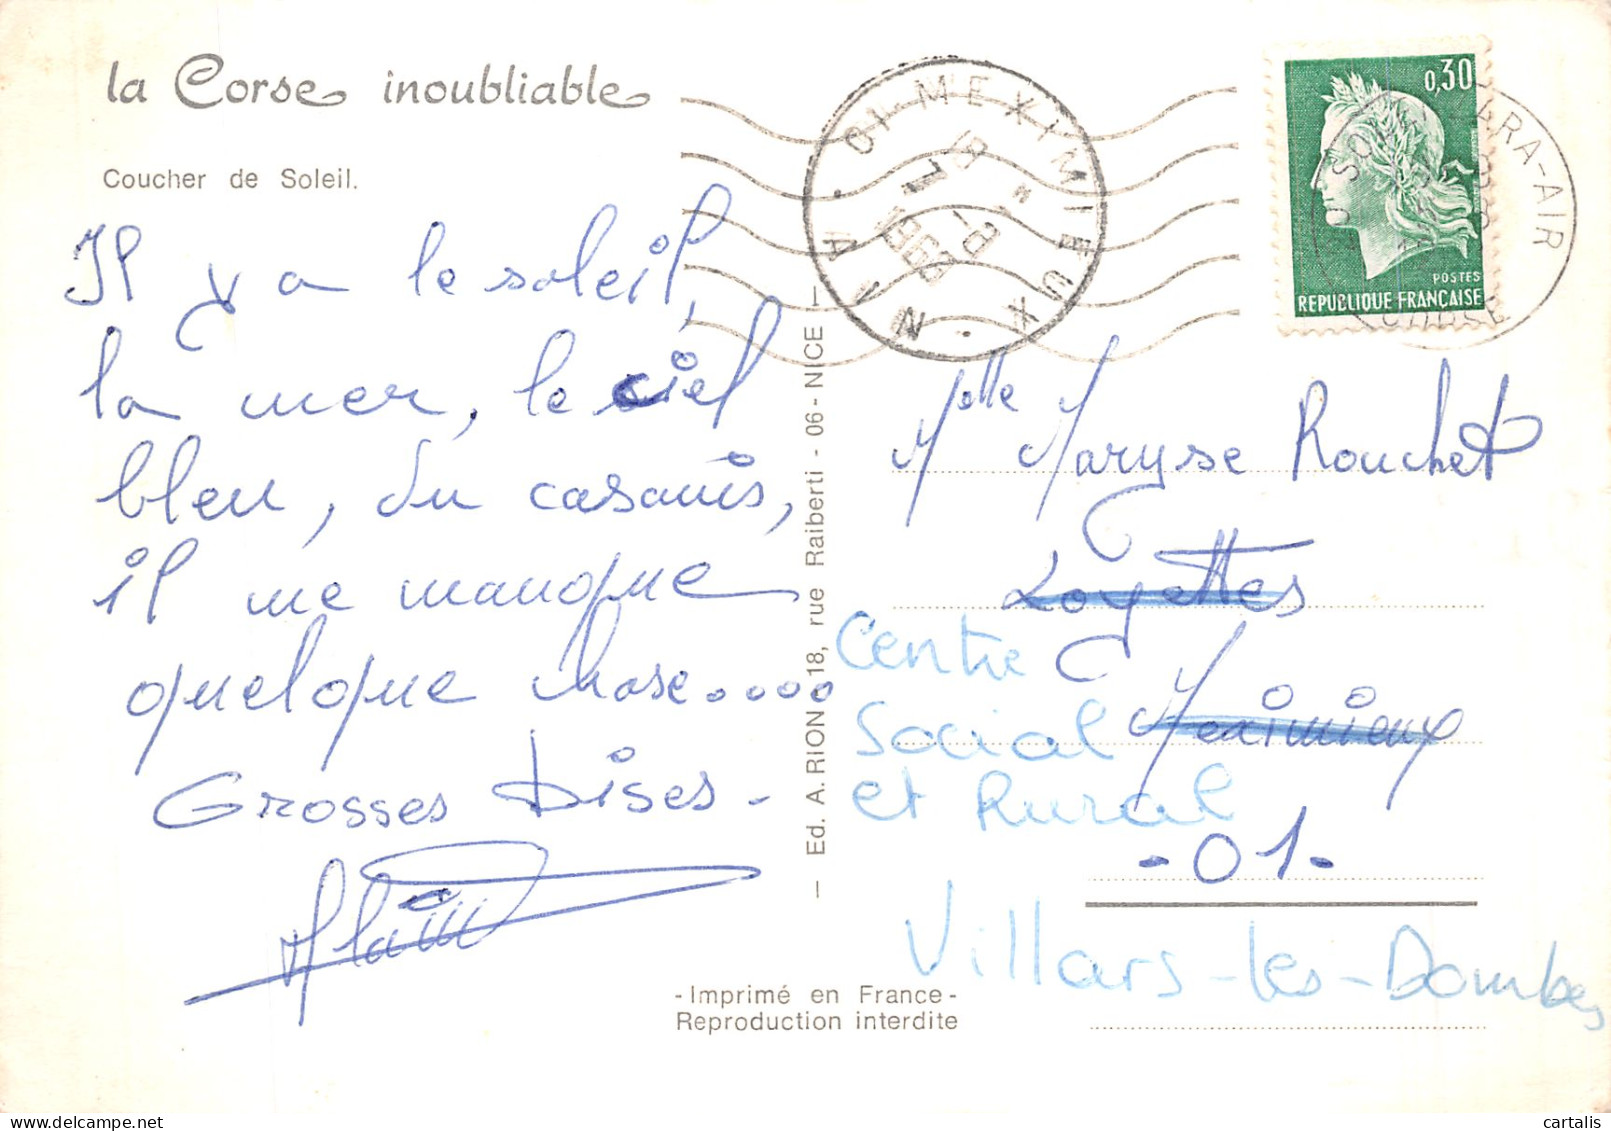 la Corse inoubliable
Coucher de Soleil.
Il y a le soleil,
la mer, le ciel
bleu, du casanis,
il me manque
quelque chose....
Grosses bises -
Alain
- Ed. A. RION - 18, rue Raiberti - 06 - NICE -
- Imprimé en France -
Reproduction interdite
01 MEXIMIEUX
AIN
18 H
7 - 8
1969
0,30
POSTES
REPUBLIQUE FRANÇAISE
ARA-AIR
CORSE
Melle Maryse Rouchet
Loyettes
Meximieux
- 01 -
Centre
Social
et Rural
Villars-les-Dombes
cartalis